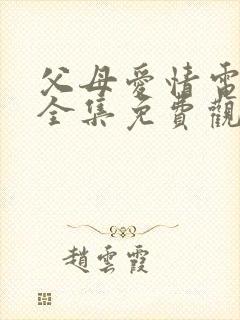 父母愛情電
全集免費觀
趙雲霞